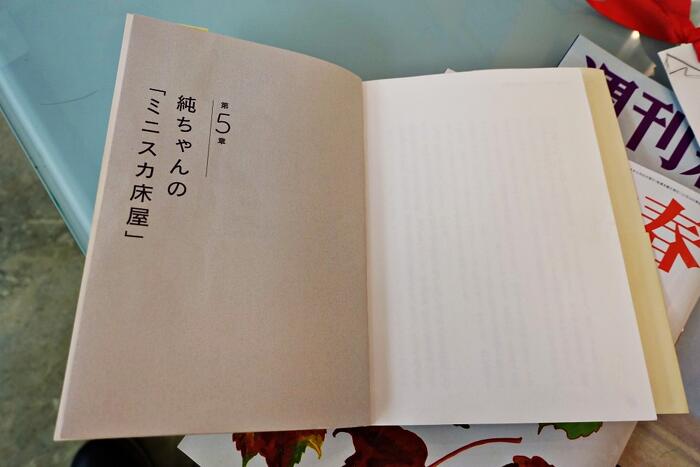 第5章
純ちゃんの
「ミニスカ床屋」
週刊
春